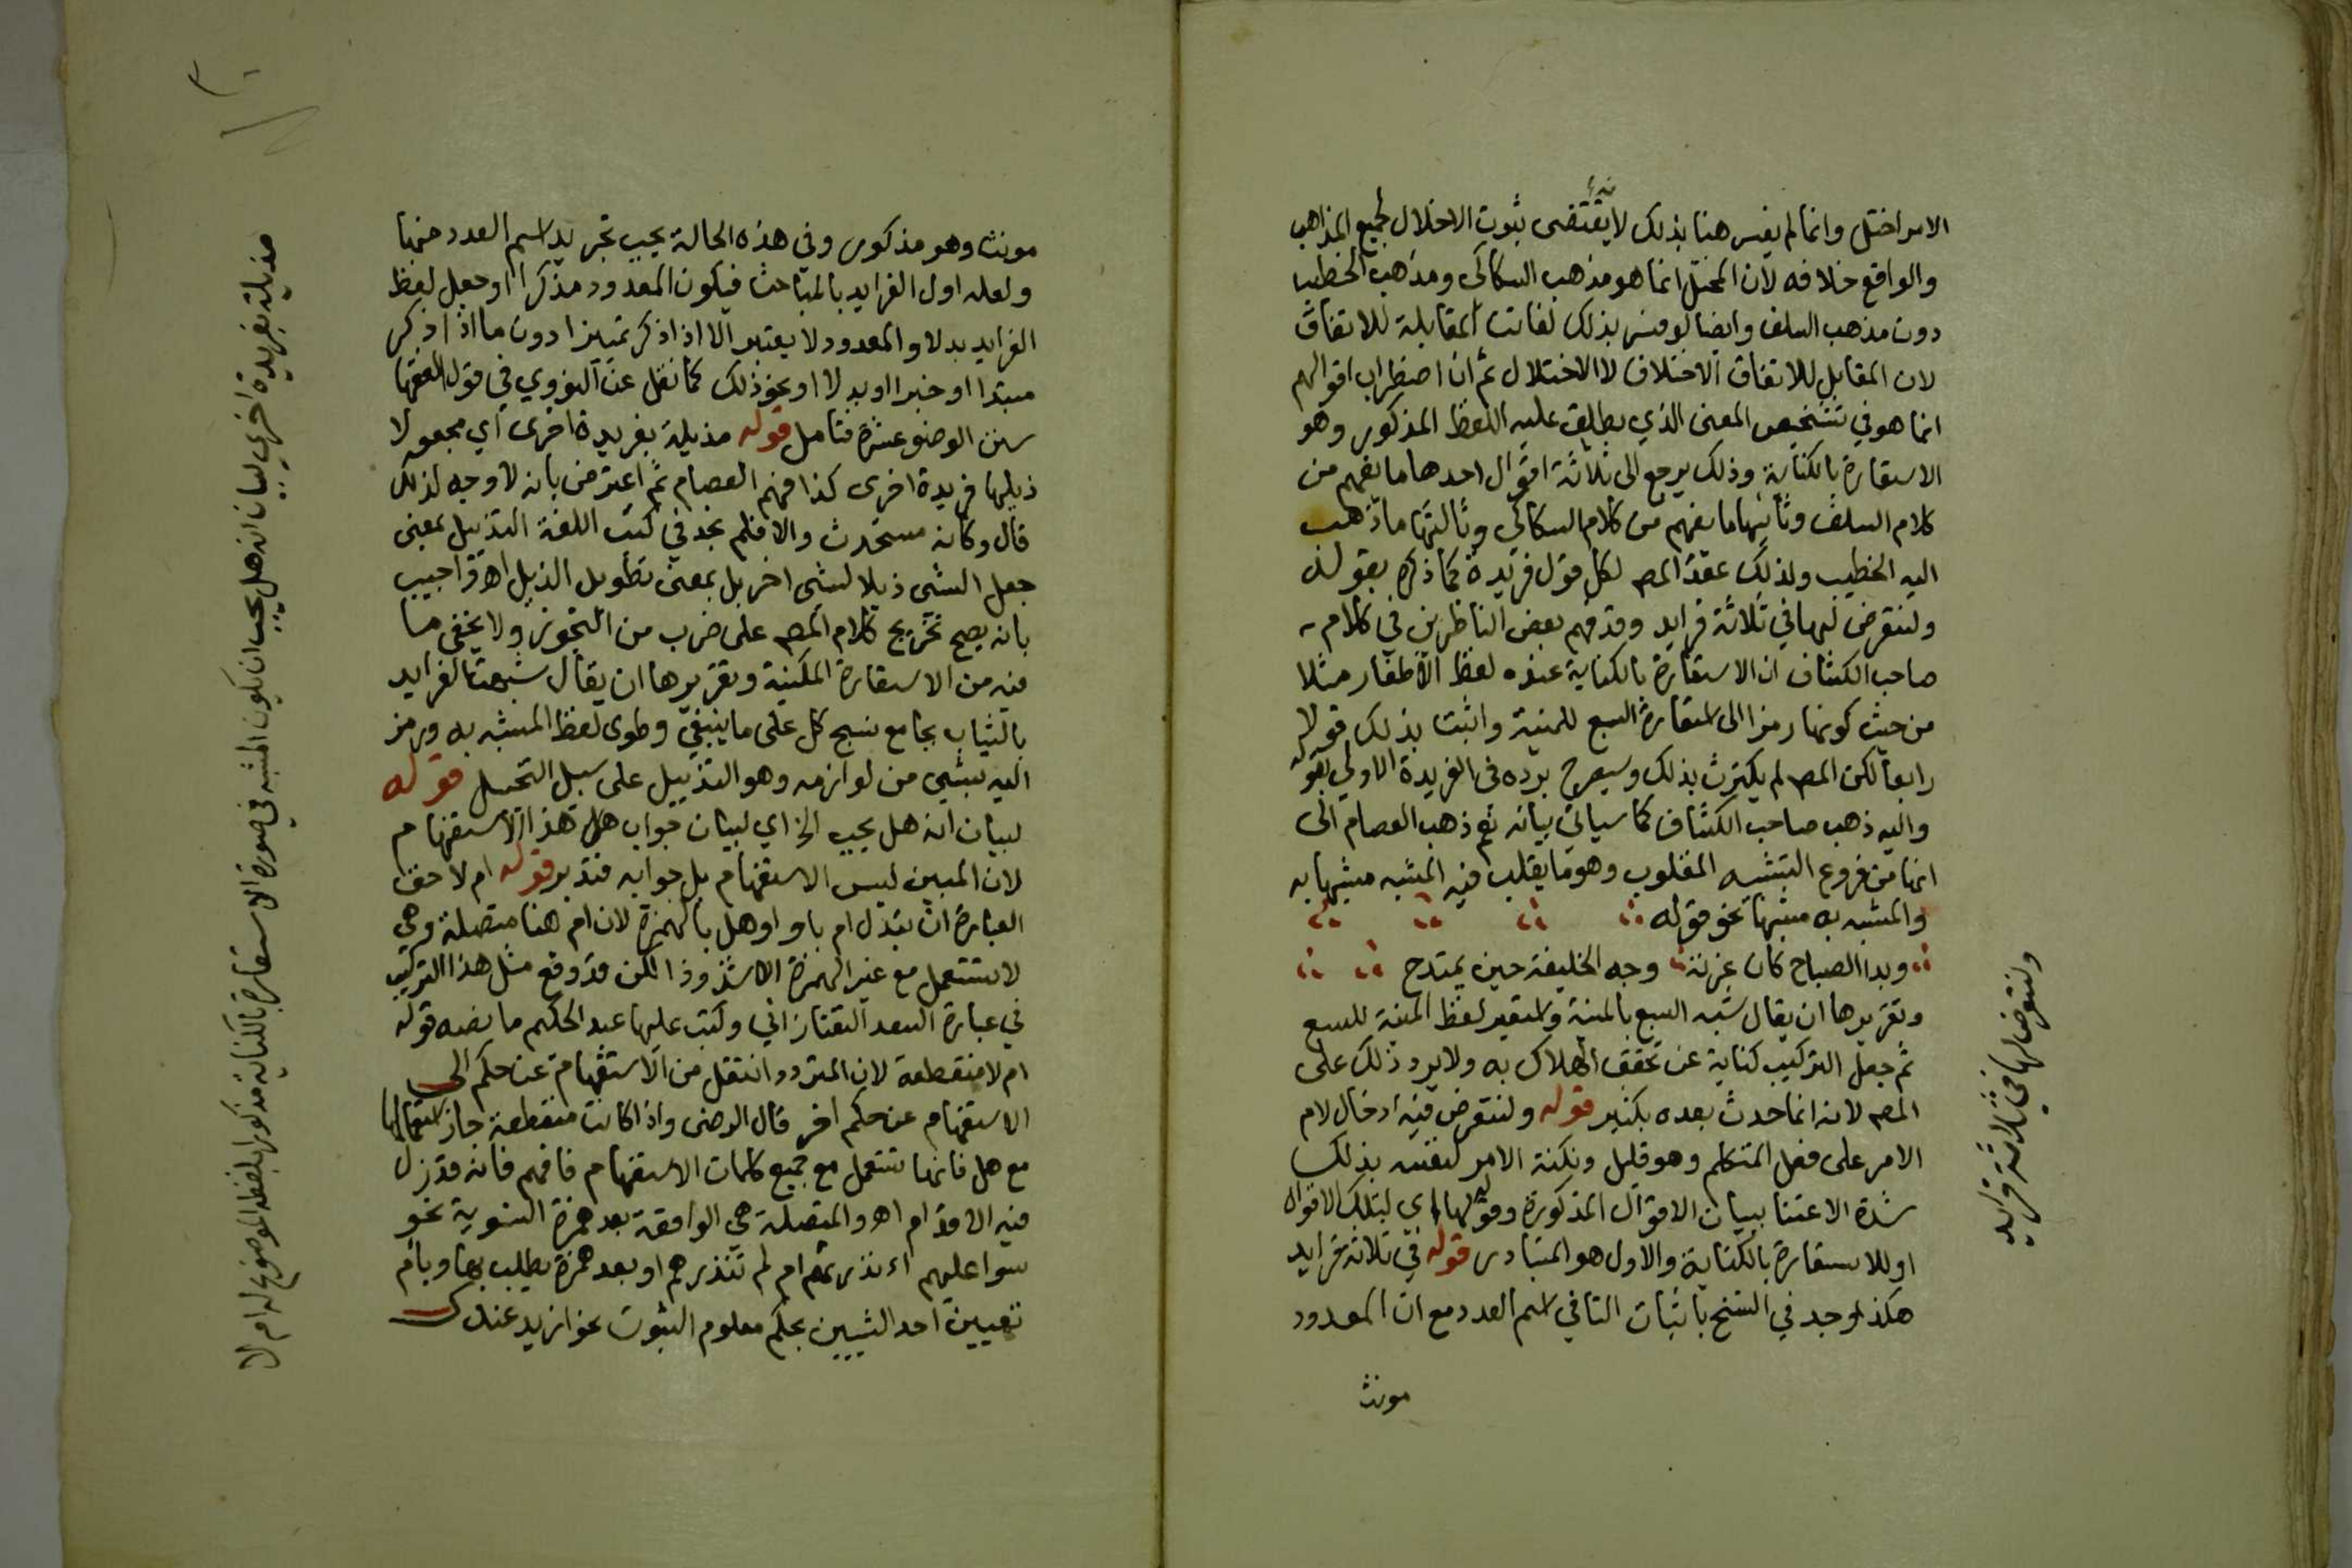 الامر اختل وانما لم يفسر هنا بذلك لانه يقتضى ثبوت الاختلال لجميع المذاهب
والواقع خلافه لان المختل انما هو مذهب السكاكى ومذهب الخطيب
دون مذهب السلف وايضا لو فسر بذلك لفاتت المقابلة للاتفاق
لان المقابل للاتفاق الاختلاف لا الاختلال ثم ان اضطراب اقوالهم
انما هو فى تشخيص المعنى الذي يطلق عليه اللفظ المذكور وهو
الاستعارة بالكناية وذلك يرجع الى ثلاثة اقوال احدها ما يفهم من
كلام السلف وثانيها ما يفهم من كلام السكاكي وثالثها ما ذهب
اليه الخطيب ولذلك عقد المص لكل قول فريدة كما ذكره بقوله
ولنتعرض لها في ثلاثة فرايد وقد فهم بعض الناظرين في كلام
صاحب الكشاف ان الاستعارة بالكناية عنده لفظ الاظفار مثلا
من حيث كونها رمزا الى استعارة السبع للمنية واثبت بذلك قولا
رابعا لكن المص لم يكترث بذلك وسيصرح برده فى الفريدة الاولى بقوله
واليه ذهب صاحب الكشاف كما سيأتي بيانه ثم ذهب العصام الى
انها من فروع التشبيه المقلوب وهو ما يقلب فيه المشبه مشبها به
والمشبه به مشبها نحو قوله
وبدا الصباح كان غرته وجه الخليفة حين يمتدح
وتقريرها ان يقال شبه السبع بالمنية واستعير لفظ المنية للسبع
ثم جعل التركيب كناية عن تحقق الهلاك به ولا يرد ذلك على
المص لانه انما حدث بعده بكثير قوله ولنتعرض فيه ادخال لام
الامر على فعل المتكلم وهو قليل ونكتة الامر لنفسه بذلك
شدة الاعتنا ببيان الاقوال المذكورة وقوله لها اي لتلك الاقوال
او للاستعارة بالكناية والاول هو المتبادر قوله في ثلاثة فرايد
هكذا وجد في النسخ باثبات التا في اسم العدد مع ان المعدود
مونث
ولنتعرض لها في ثلاثة فرايد
مونث وهو مذكور وفي هذه الحالة يجب تجريد اسم العدد منها
ولعله اول الفرايد بالمباحث فيكون المعدود مذكرا او جعل لفظ
الفرايد بدلا والمعدود لا يعتبر الا اذا ذكر تمييزا دون ما اذا ذكر
مبتدا او خبرا او بدلا او نحو ذلك كما نقل عن النووي في قول الفقها
سنن الوضو عشرة فتامل قوله مذيلة بفريدة اخرى اي مجعولا
ذيلها فريدة اخرى كذا فهم العصام ثم اعترض بانه لا وجه لذلك
قال وكانه مستحدث والا فلم نجد في كتب اللغة التذييل بمعنى
جعل الشى ذيلا لشى اخر بل بمعنى تطويل الذيل اهـ واجيب
بانه يصح تخريج كلام المص على ضرب من التجوز ولا يخفى ما
فيه من الاستعارة المكنية وتقريرها ان يقال شبهت الفرايد
بالثياب بجامع نسج كل على ما ينبغي وطوى لفظ المشبه به ورمز
اليه بشي من لوازمه وهو التذييل على سبيل التخييل قوله
لبيان انه هل يجب الخ اي لبيان جواب هل هذا الاستفهام
لان المبين ليس الاستفهام بل جوابه فتدبر قوله ام لا حق
العبارة ان يبدل ام باو او هل بالهمزة لان ام هنا متصلة وهي
لا تستعمل مع غير الهمزة الا شذوذا لكن قد وقع مثل هذا التركيب
في عبارة السعد التفتازاني وكتب عليها عبد الحكيم ما نصه قوله
ام لا منقطعة لان المتردد انتقل من الاستفهام عن حكم الى
الاستفهام عن حكم اخر قال الرضى واذا كانت منقطعة جاز استعمالها
مع هل فانها تستعمل مع جميع كلمات الاستفهام فافهم فانه قد زل
فيه الاقدام اهـ والمتصلة هي الواقعة بعد همزة التسوية نحو
سوا عليهم اءنذرتهم ام لم تنذرهم او بعد همزة يطلب بها وبام
تعيين احد الشيين بحكم معلوم الثبوت نحو ازيد عندك
مذيلة بفريدة اخرى لبيان انه هل يجب ان يكون المشبه في صورة الاستعارة بالكناية مذكورا بلفظه الموضوع له ام لا